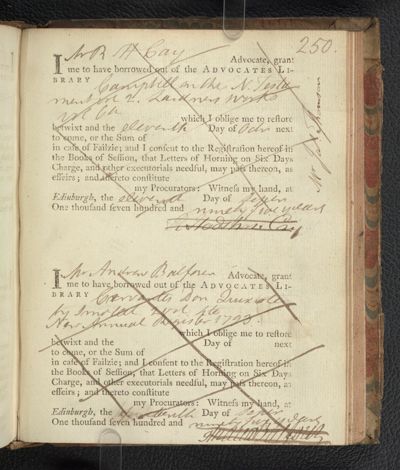 250.
I Mr R H Cay Advocate, grant
me to have borrowed out of the ADVOCATES LI-
BRARY Campbell on the N. Testa
ment vol 2. Lardners Works
vol 6th
which I oblige me to restore
betwixt and the eleventh Day of Octr next
to come, or the Sum of
in case of Failzie; and I consent to the Registration hereof in
the Books of Session, that Letters of Horning on Six Days
Charge, and other executorials needful, may pass thereon, as
effeirs; and thereto constitute
my Procurators: Witness my hand, at
Edinburgh, the eleventh Day of Septr
One thousand seven hundred and ninety five years
I Mr Andrew Balfour Advocate, grant
me to have borrowed out of the ADVOCATES LI-
BRARY Cervantes Don Quixote
by Smollet
New Annual Register
which I oblige me to restore
betwixt and the Day of next
to come, or the Sum of
in case of Failzie; and I consent to the Registration hereof in
the Books of Session, that Letters of Horning on Six Days
Charge, and other executorials needful, may pass thereon, as
effeirs; and thereto constitute
my Procurators: Witness my hand, at
Edinburgh, the Day of Septr
One thousand seven hundred and ninety five years